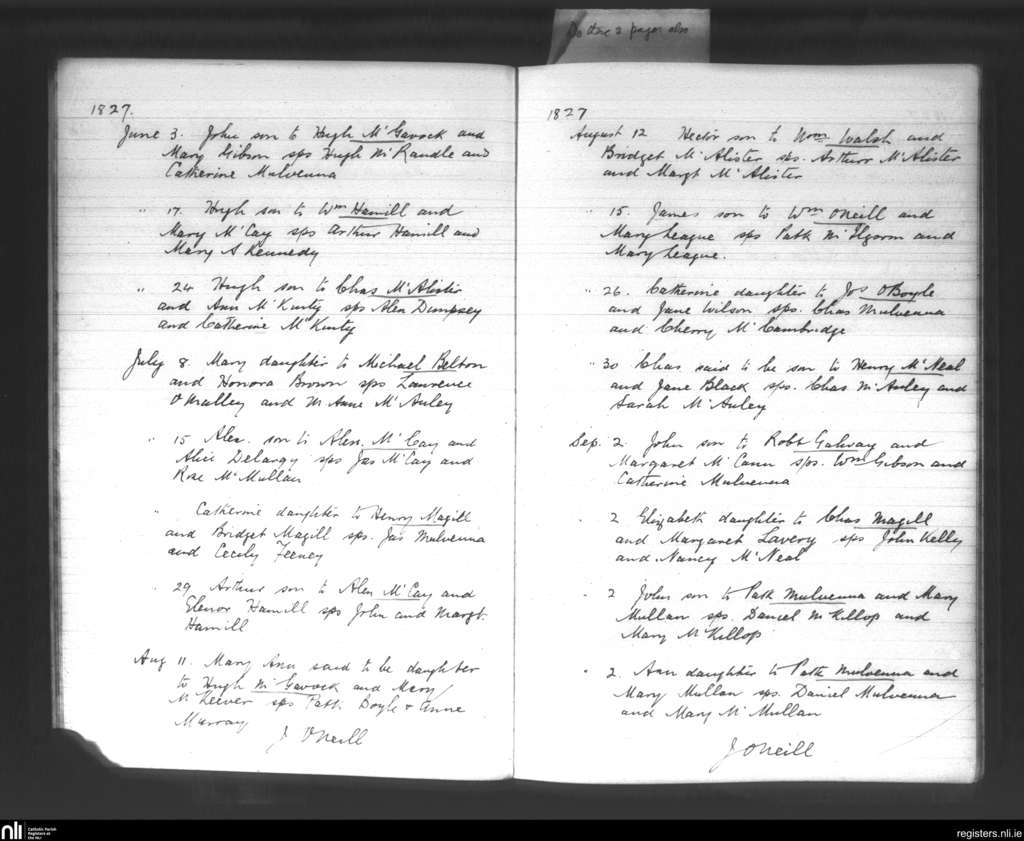 Do these 2 pages also
1827.
June 3. John son to Hugh McGavock and
Mary Gibson sps Hugh McRandle and
Catherine Mulvenna
" 17. Hugh son to Wm Hamill and
Mary McCay sps Arthur Hamill and
Mary A Kennedy
" 24 Hugh son to Chas McAlister
and Ann McKinty sps Alex Dempsey
and Catherine McKinty
July 8. Mary daughter to Michael Belton
and Honora Brown sps Lawrence
O'Malley and M Anne McAuley
" 15 Alex. son to Alex. McCay and
Alice Delargy sps Jas McCay and
Rose McMullan
" Catherine daughter to Henry Magill
and Bridget Magill sps. Jas Mulvenna
and Cecily Feeney
" 29 Arthur son to Alex McCay and
Elenor Hamill sps John and Margt.
Hamill
Aug 11. Mary Ann said to be daughter
to Hugh McGavock and Mary
McKeever sps Patk Boyle + Anne
Murray
J O'Neill
1827
August 12 Hector son to Wm Walsh and
Bridget McAlister sps. Arthur McAlister
and Margt McAlister
" 15. James son to Wm O'Neill and
Mary League sps Patk McIlgorm and
Mary League.
" 26. Catherine daughter to Jos O'Boyle
and Jane Wilson sps. Chas Mulvenna
and Cherry McCambridge
" 30 Chas said to be son to Henry McNeal
and Jane Black sps. Chas McAuley and
Sarah McAuley
Sep. 2 John son to Robt Galway and
Margaret McCann sps. Wm Gibson and
Catherine Mulvenna
" 2 Elizabeth daughter to Chas Magill
and Margaret Lavery sps John Kelly
and Nancy McNeal
" 2 John son to Patk Mulvenna and Mary
Mullan sps. Daniel McKillop and
Mary McKillop
" 2. Ann daughter to Patk Mulvenna and
Mary Mullan sps. Daniel Mulvenna
and Mary McMullan
J O'Neill
nli Catholic Parish
Registers at
the NLI
registers.nli.ie